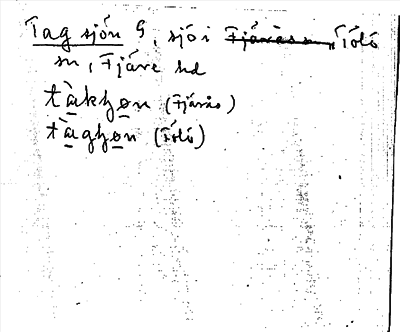 Tag sjön G, sjö i ~~Fjärås sn~~, Tölö
sn, Fjäre hd
tàkhọn (Fjärås)
tàghọn (Tölö)